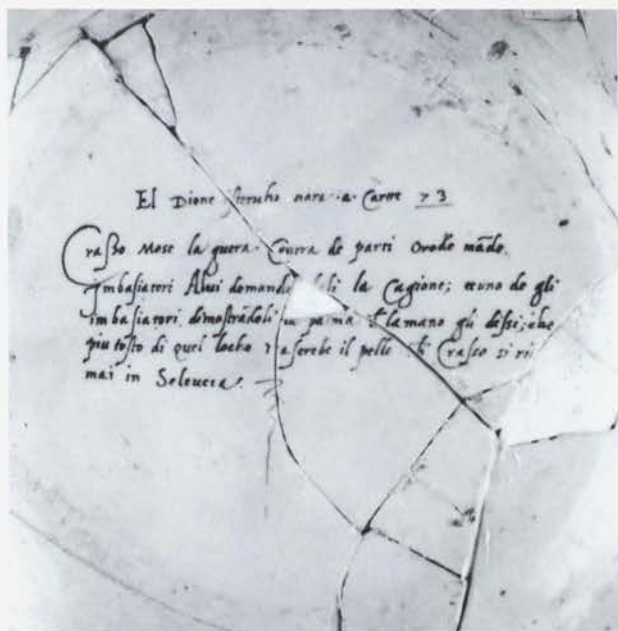 El Dione nara a Carte 73
Crasso Mose la guera Contra de parti Orode mãde.
Imbasiatori Alui domandã la Cagione; et uno de gli
imbasiatori, dimostrãdoli la palma la mano gli disse; che
piu tosto di quel locho il pelle Crasso si
mai in Seleucia.